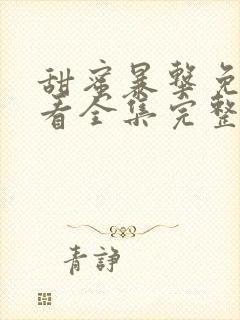 甜蜜暴撃免
看全集完整
青諍